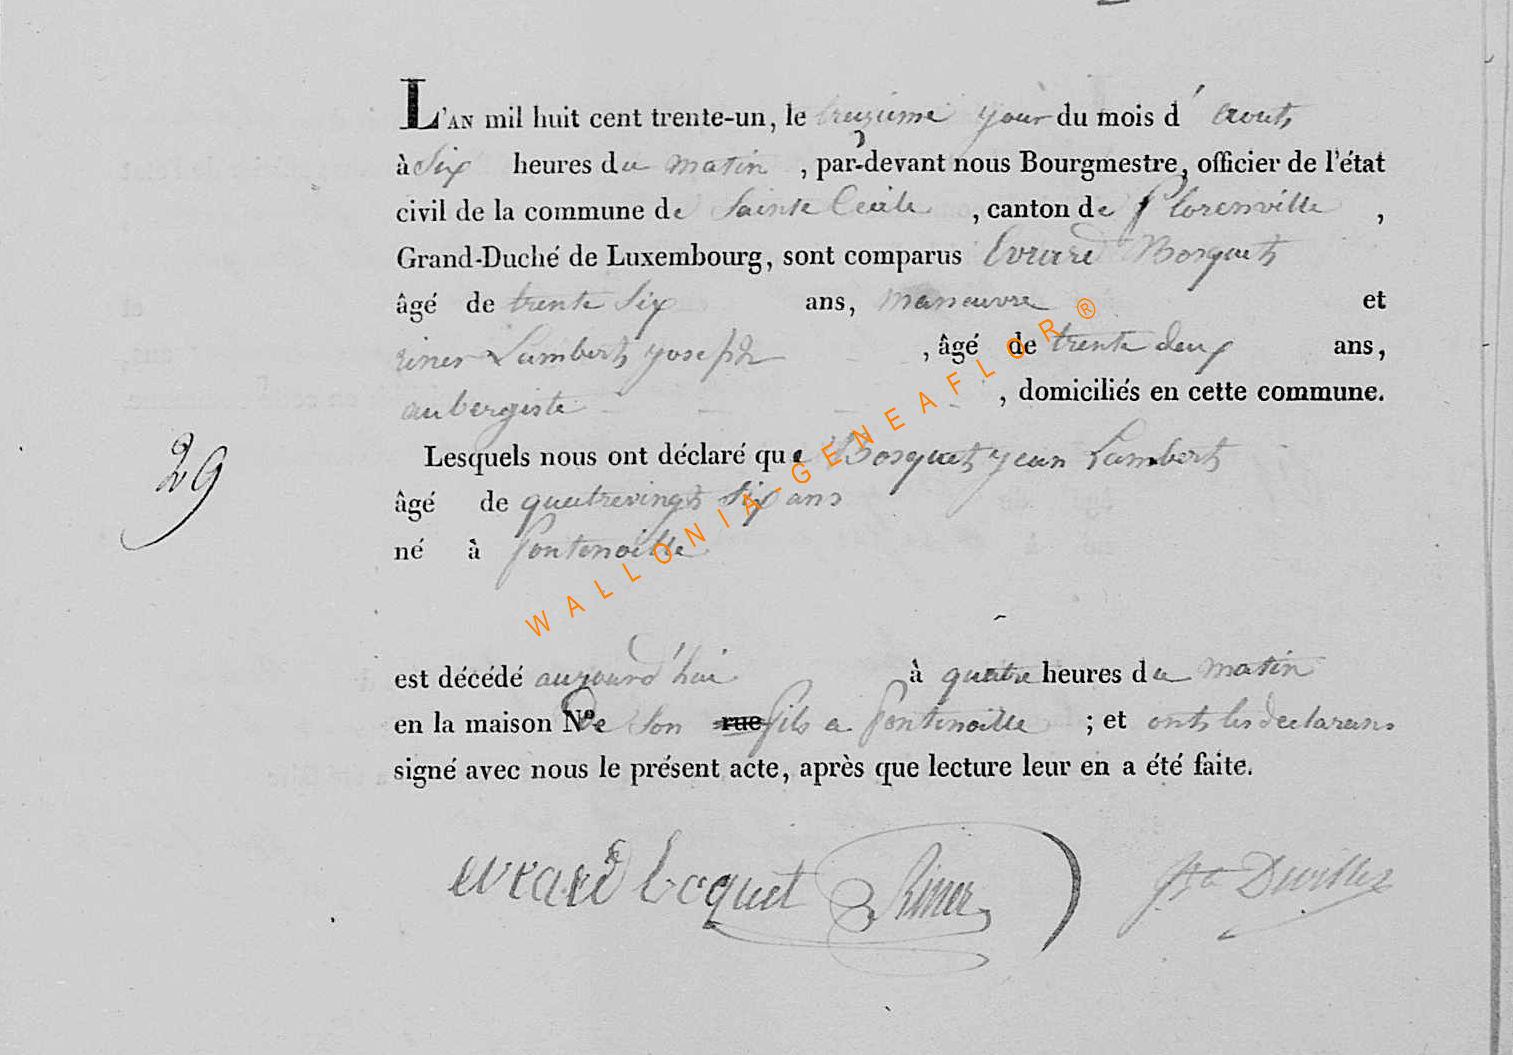 L'AN mil huit cent trente-un, le treizieme jour du mois d'aout
à Six heures du matin, par-devant nous Bourgmestre, officier de l'état
civil de la commune de Sainte Cecile, canton de florenville,
Grand-Duché de Luxembourg, sont comparus Evrard Bosquet
âgé de trente Six ans, manoeuvre et
riner Lambert joseph, âgé de trente deux ans,
aubergiste, domiciliés en cette commune.
Lesquels nous ont déclaré que Bosquet jean Lambert
29
âgé de quatrevingt Six ans
né à fontenoille
est décédé aujourd'hui à quatre heures du matin
en la maison N° De Son rue fils a fontenoille ; et ont les declarans
signé avec nous le présent acte, après que lecture leur en a été faite.
evrard boquet Riner
WALLONIA-GENEAFLOR®